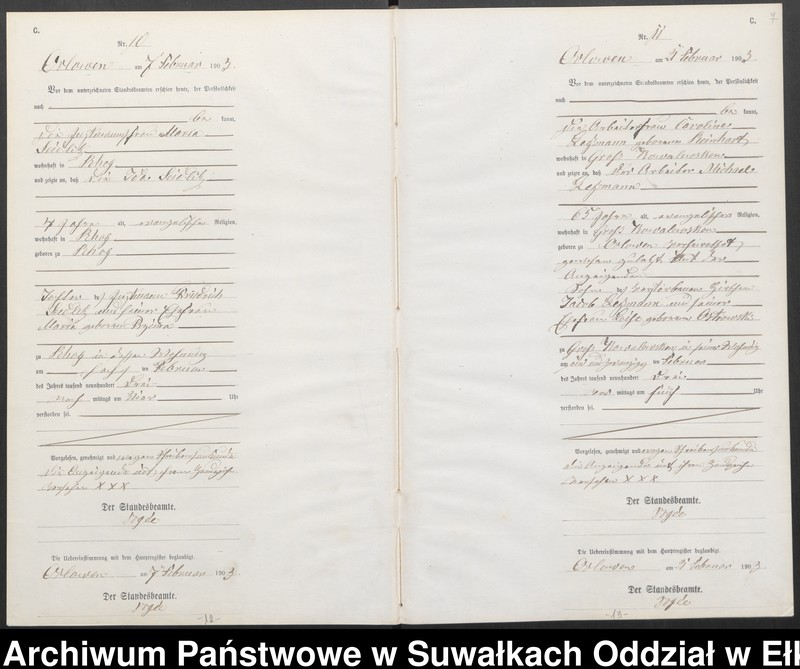 C.
Nr. 10
Orlowen am 7 Februar 1903.
Vor dem unterzeichneten Standesbeamten erschien heute, der Persönlichkeit
nach
be kannt,
die Instmannsfrau Maria
Seidlitz
wohnhaft in
und zeigte an, daß die Ida Seidlitz
4 Jahre alt, evangelischer Religion,
wohnhaft in
geboren zu
Tochter des Instmann Friedrich
Seidlitz und seiner Ehefrau
Maria geborene
zu in dessen Wohnung
am Februar
des Jahres tausend neunhundert drei
nach mittags um vier Uhr
verstorben sei.
Vorgelesen, genehmigt und wegen Schreibensunkunde
die Anzeigende mit ihrem Handzeichen
versehen XXX
Der Standesbeamte.
Die Uebereinstimmung mit dem Hauptregister beglaubigt.
Orlowen am 7 Februar 1903.
Der Standesbeamte.
-12-
7
C.
Nr. 11
Orlowen am Februar 1903.
Vor dem unterzeichneten Standesbeamten erschien heute, der Persönlichkeit
nach
be kannt,
die Arbeiterfrau Caroline
geborene Steinhart
wohnhaft in Groß Kowalewsken
und zeigte an, daß der Arbeiter Michael
65 Jahre alt, evangelischer Religion,
wohnhaft in Groß Kowalewsken
geboren zu Orlowen verheirathet
gewesen zuletzt mit der
Anzeigenden
Sohn des verstorbenen
Jacob und seiner
Ehefrau geborene Ostrowski
zu Groß Kowalewsken in seiner Wohnung
am ein und zwanzigsten Februar
des Jahres tausend neunhundert drei
vor mittags um fünf Uhr
verstorben sei.
Vorgelesen, genehmigt und wegen Schreibensunkunde
die Anzeigende mit ihrem Handzeichen
versehen XXX
Der Standesbeamte.
Die Uebereinstimmung mit dem Hauptregister beglaubigt.
Orlowen am Februar 1903.
Der Standesbeamte.
-13-
Archiwum Państwowe w Suwałkach Oddział w Eł